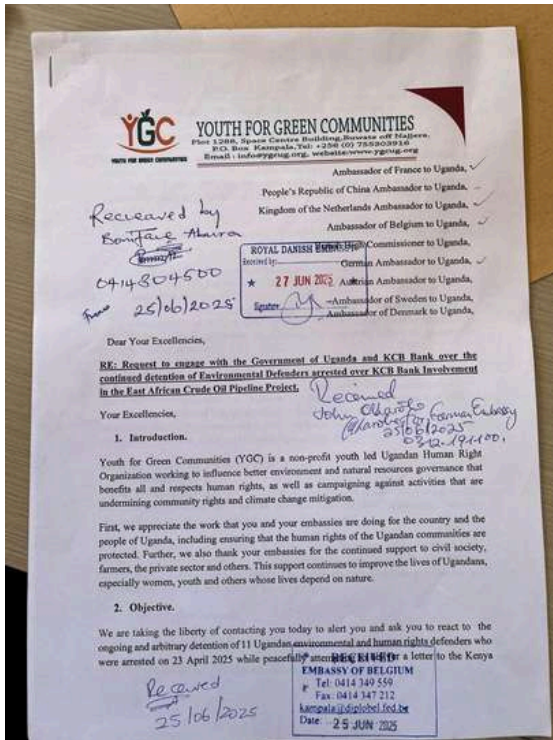 YGC
YOUTH FOR GREEN COMMUNITIES
YOUTH FOR GREEN COMMUNITIES
Plot 1288, Space Centre Building, Buwate off Najjera,
P.O. Box Kampala, Tel: +256 (0) 755303916
Email : info@ygcug.org, website:www.ygcug.org
Ambassador of France to Uganda,
People's Republic of China Ambassador to Uganda,
Kingdom of the Netherlands Ambassador to Uganda,
Ambassador of Belgium to Uganda,
Commissioner to Uganda,
German Ambassador to Uganda,
Austrian Ambassador to Uganda,
Ambassador of Sweden to Uganda,
Ambassador of Denmark to Uganda,
Recieaved by
Boniface
0414304500
25/06/2025
ROYAL DANISH
Received by:
27 JUN 2025
Signature
Dear Your Excellencies,
RE: Request to engage with the Government of Uganda and KCB Bank over the
continued detention of Environmental Defenders arrested over KCB Bank Involvement
in the East African Crude Oil Pipeline Project.
Received
John
German Embassy
25/06/2025
Your Excellencies,
1. Introduction.
Youth for Green Communities (YGC) is a non-profit youth led Ugandan Human Right
Organization working to influence better environment and natural resources governance that
benefits all and respects human rights, as well as campaigning against activities that are
undermining community rights and climate change mitigation.
First, we appreciate the work that you and your embassies are doing for the country and the
people of Uganda, including ensuring that the human rights of the Ugandan communities are
protected. Further, we also thank your embassies for the continued support to civil society,
farmers, the private sector and others. This support continues to improve the lives of Ugandans,
especially women, youth and others whose lives depend on nature.
2. Objective.
We are taking the liberty of contacting you today to alert you and ask you to react to the
ongoing and arbitrary detention of 11 Ugandan environmental and human rights defenders who
were arrested on 23 April 2025 while peacefully a letter to the Kenya
Received
25/06/2025
RECEIVED
EMBASSY OF BELGIUM
Tel: 0414 349 559
Fax: 0414 347 212
kampala@diplobel.fed.be
Date: 25 JUN 2025